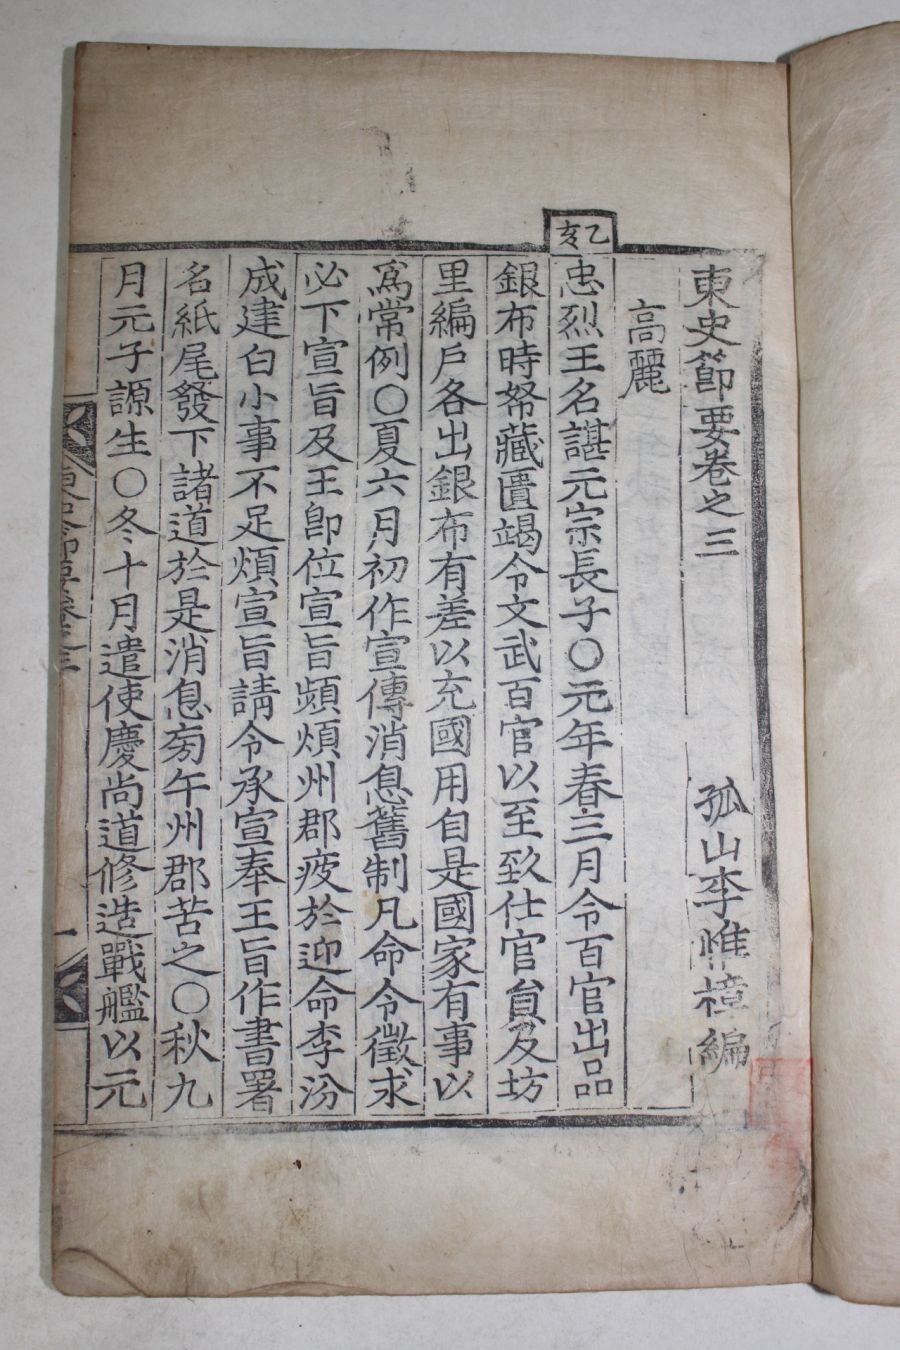 東史節要卷之三
孤山李惟樟編
高麗
乙亥
忠烈王名諶元宗長子〇元年春三月令百官出品
銀布時帑藏匱竭令文武百官以至致仕官員及坊
里編戶各出銀布有差以充國用自是國家有事以
爲常例〇夏六月初作宣傳消息舊制凡命令徵求
必下宣旨及王卽位宣旨頻煩州郡疲於迎命李汾
成建白小事不足煩宣旨請令承宣奉王旨作書署
名紙尾發下諸道於是消息旁午州郡苦之〇秋九
月元子謜生〇冬十月遣使慶尚道修造戰艦以元
東史節要卷之三
一